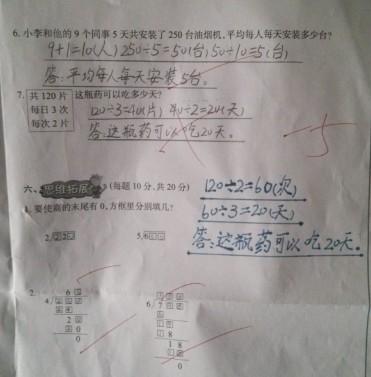 6. 小李和他的 9 个同事 5 天共安装了 250 台油烟机,平均每人每天安装多少台?
9+1=10(人) 250÷5=50(台) 50÷10=5(台)
答:平均每人每天安装5台。
7. 共 120 片 这瓶药可以吃多少天?
每日 3 次
每次 2 片
120÷3=40(片) 40÷2=20(天)
答:这瓶药可以吃20天。
-5
120÷2=60(次)
60÷3=20(天)
答:这瓶药可以吃20天。
六、思维拓展 (每题 10 分,共 20 分)
1. 要使商的末尾有 0,方框里分别填几?
2.
6
4
2
0
0
6
7
8
1 8
0